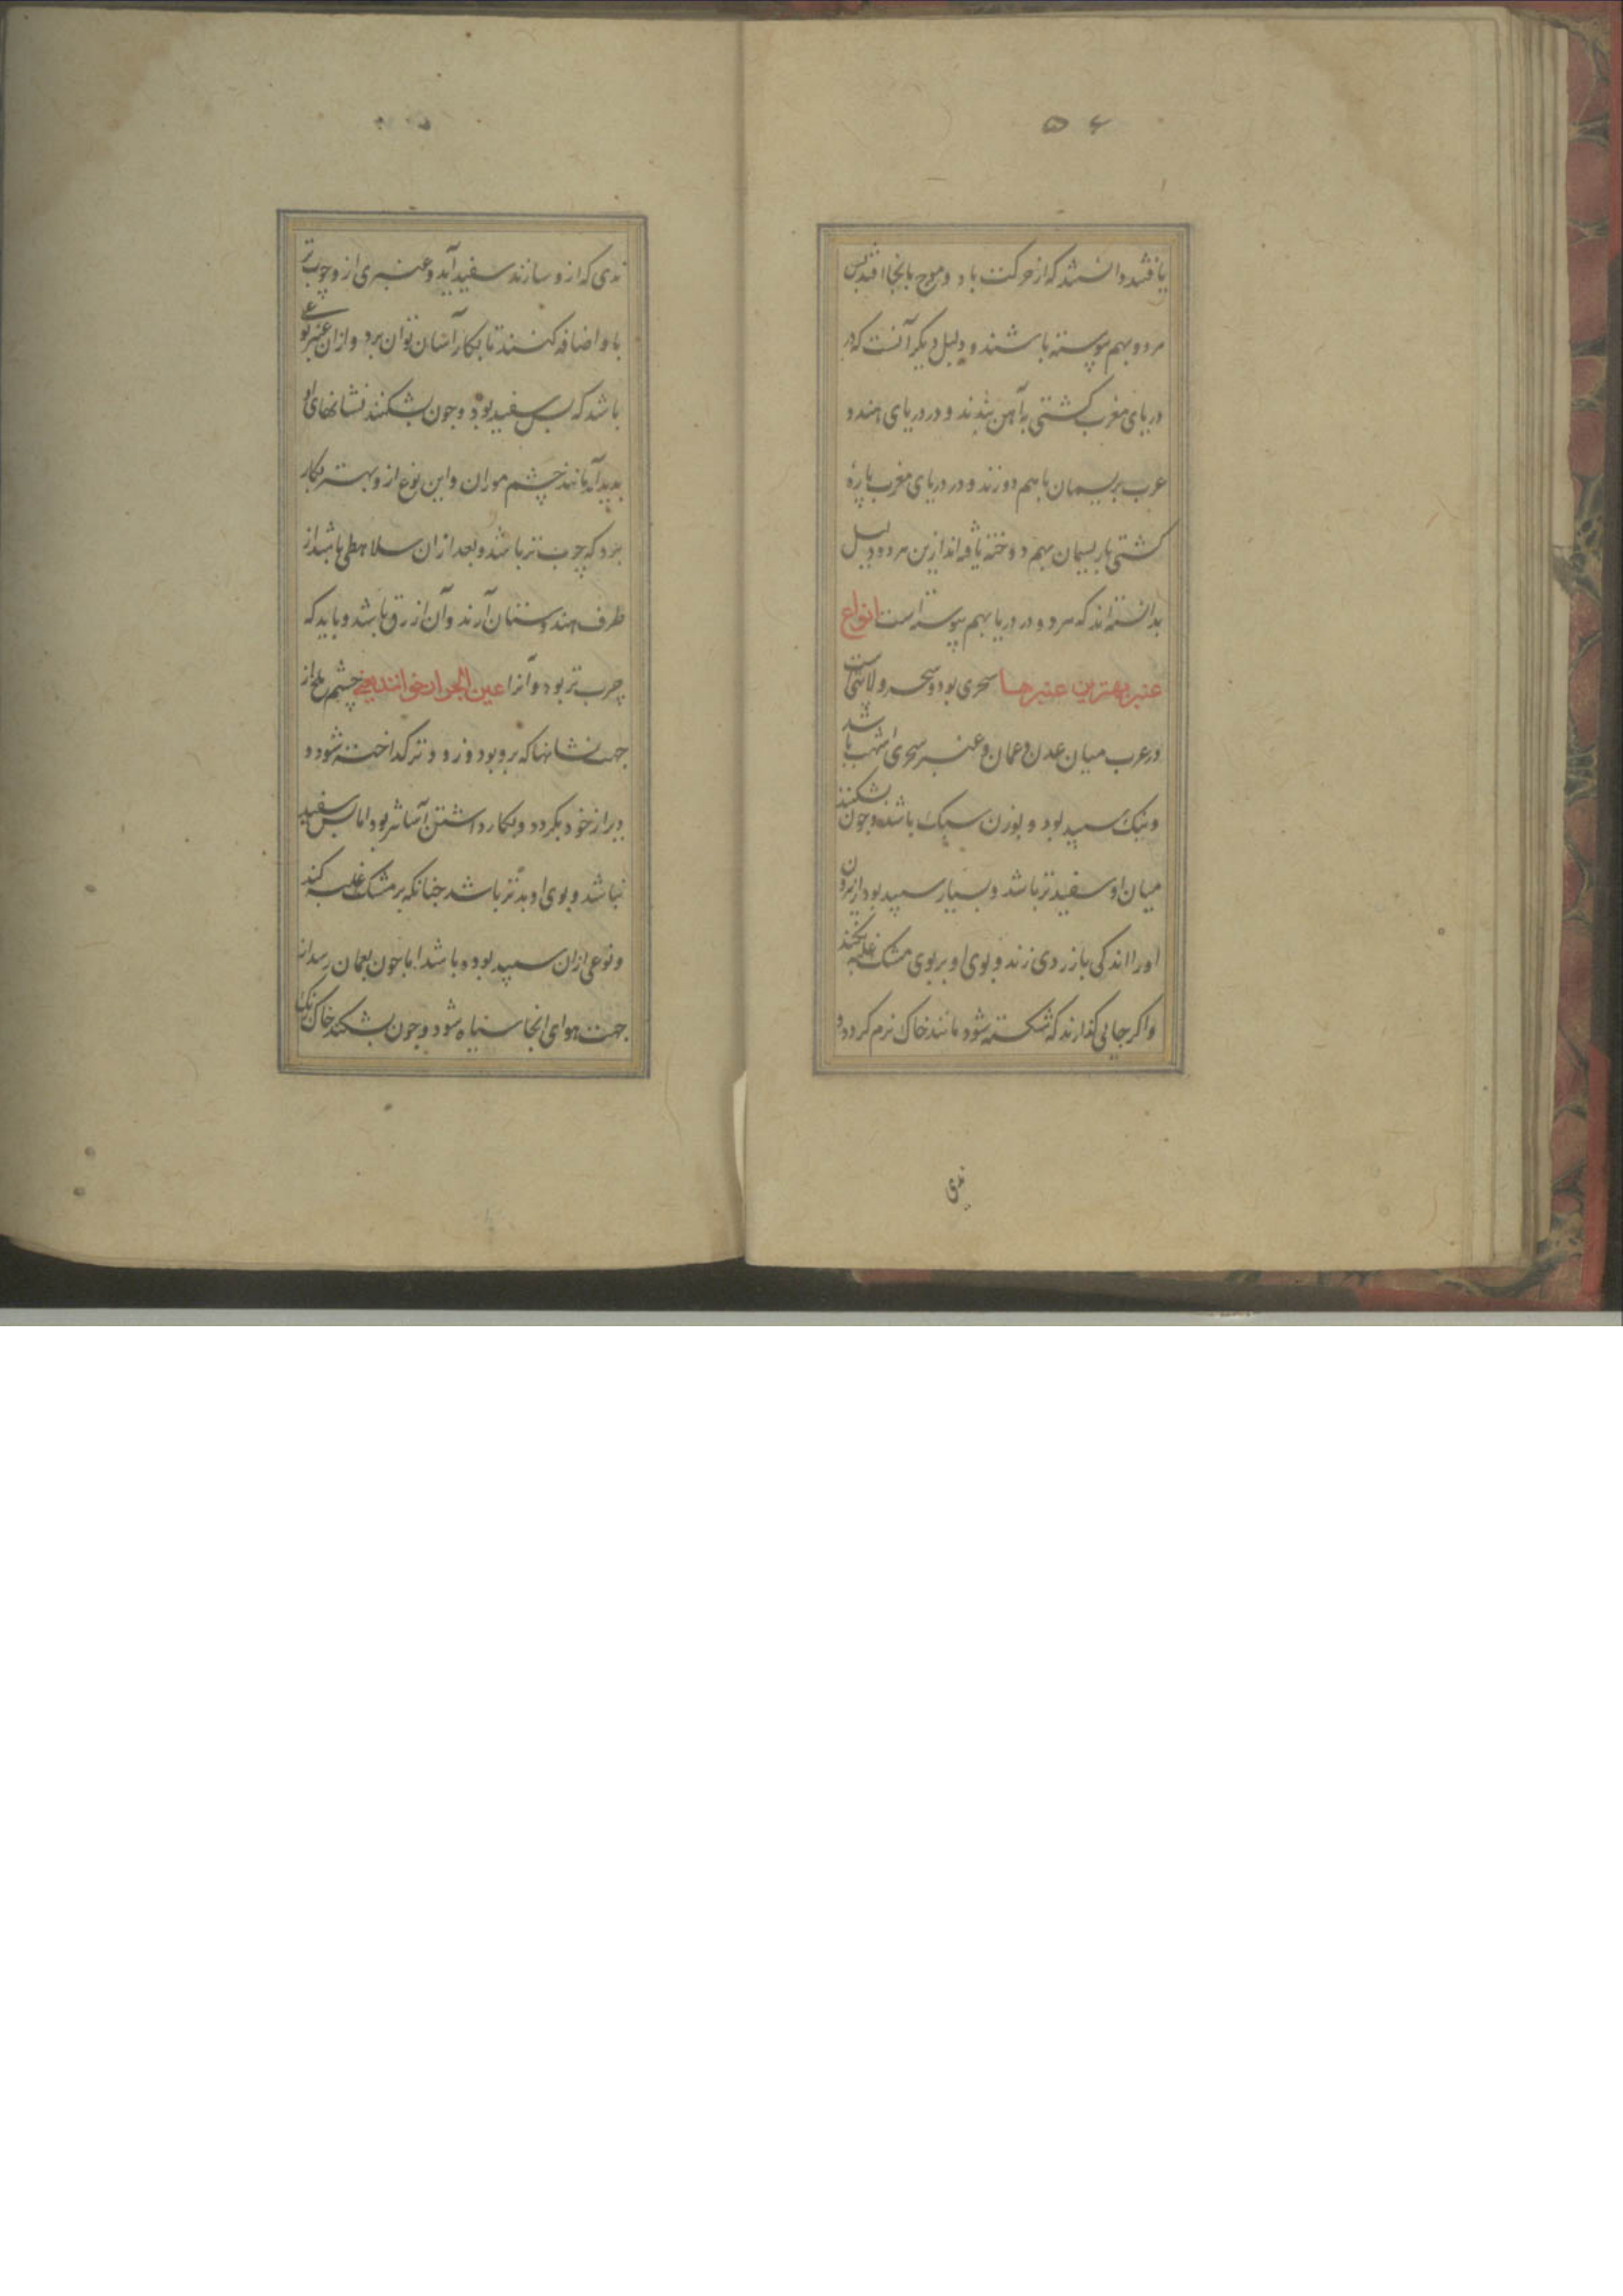 ۵۶
یافتند دانستند که از حرکت باد و موج بانجا افتد پس
هر دو بهم پیوسته باشند و دلیل دیکر آنست که در
دریای مغرب کشتی به آهن بندند و در دریای هند و
عرب بریسمان باهم دوزند و در دریای مغرب پارهٔ
کشتی بار یسمان بهم دوخته یافته اند ازین هر دو دلیل
بدانسته اند که هر دو دریا بهم پیوسته است انواع
عنبر بهترین عنبرها شحری بود و شحر ولایتی است
در عرب میان عدن و عمان و عنبر شحری اشهب باشد
و نیک سپید بود و بوزن سبک باشد و چون بشکنند
میان او سفیدتر باشد و بسیار سپید بود از برون
او را اندکی بازردی زند و بوی او بر بوی مشک غلبه نکند
و اکر جایی کذارند که شکسته شود مانند خاک نرم کردد و
ندی
ندی که ازو سازند سفید آید و عنبری ازو چرب تر
با او اضافه کنند تا بکار آسان توان برد و ازان عنبر نوعی
باشد که بس سفید بود و جون بشکنند نشانهای او
پدید آید مانند چشم موران و این نوع ازو بهتر بکار
بود که چرب تر باشد و بعد ازان سلاهطی باشد از
طرف هندوستان آرند و آن ازرق باشد و باید که
چرب تر بود و آنرا عین الجراد خوانند یعنی چشم ملخ از
جهت نشانها که برو بود و زودتر کداخته شود و
دیر از خود بکردد و بکار داشتن آسانتر بود اما بس سفید
نباشد و بوی او بدتر باشد جنانکه بر مشک غلبه کند
و نوعی ازان سپید بوده باشد اما جون بعمان رسد از
جهت هوای انجا سیاه شود و جون بشکنند خاک رنک